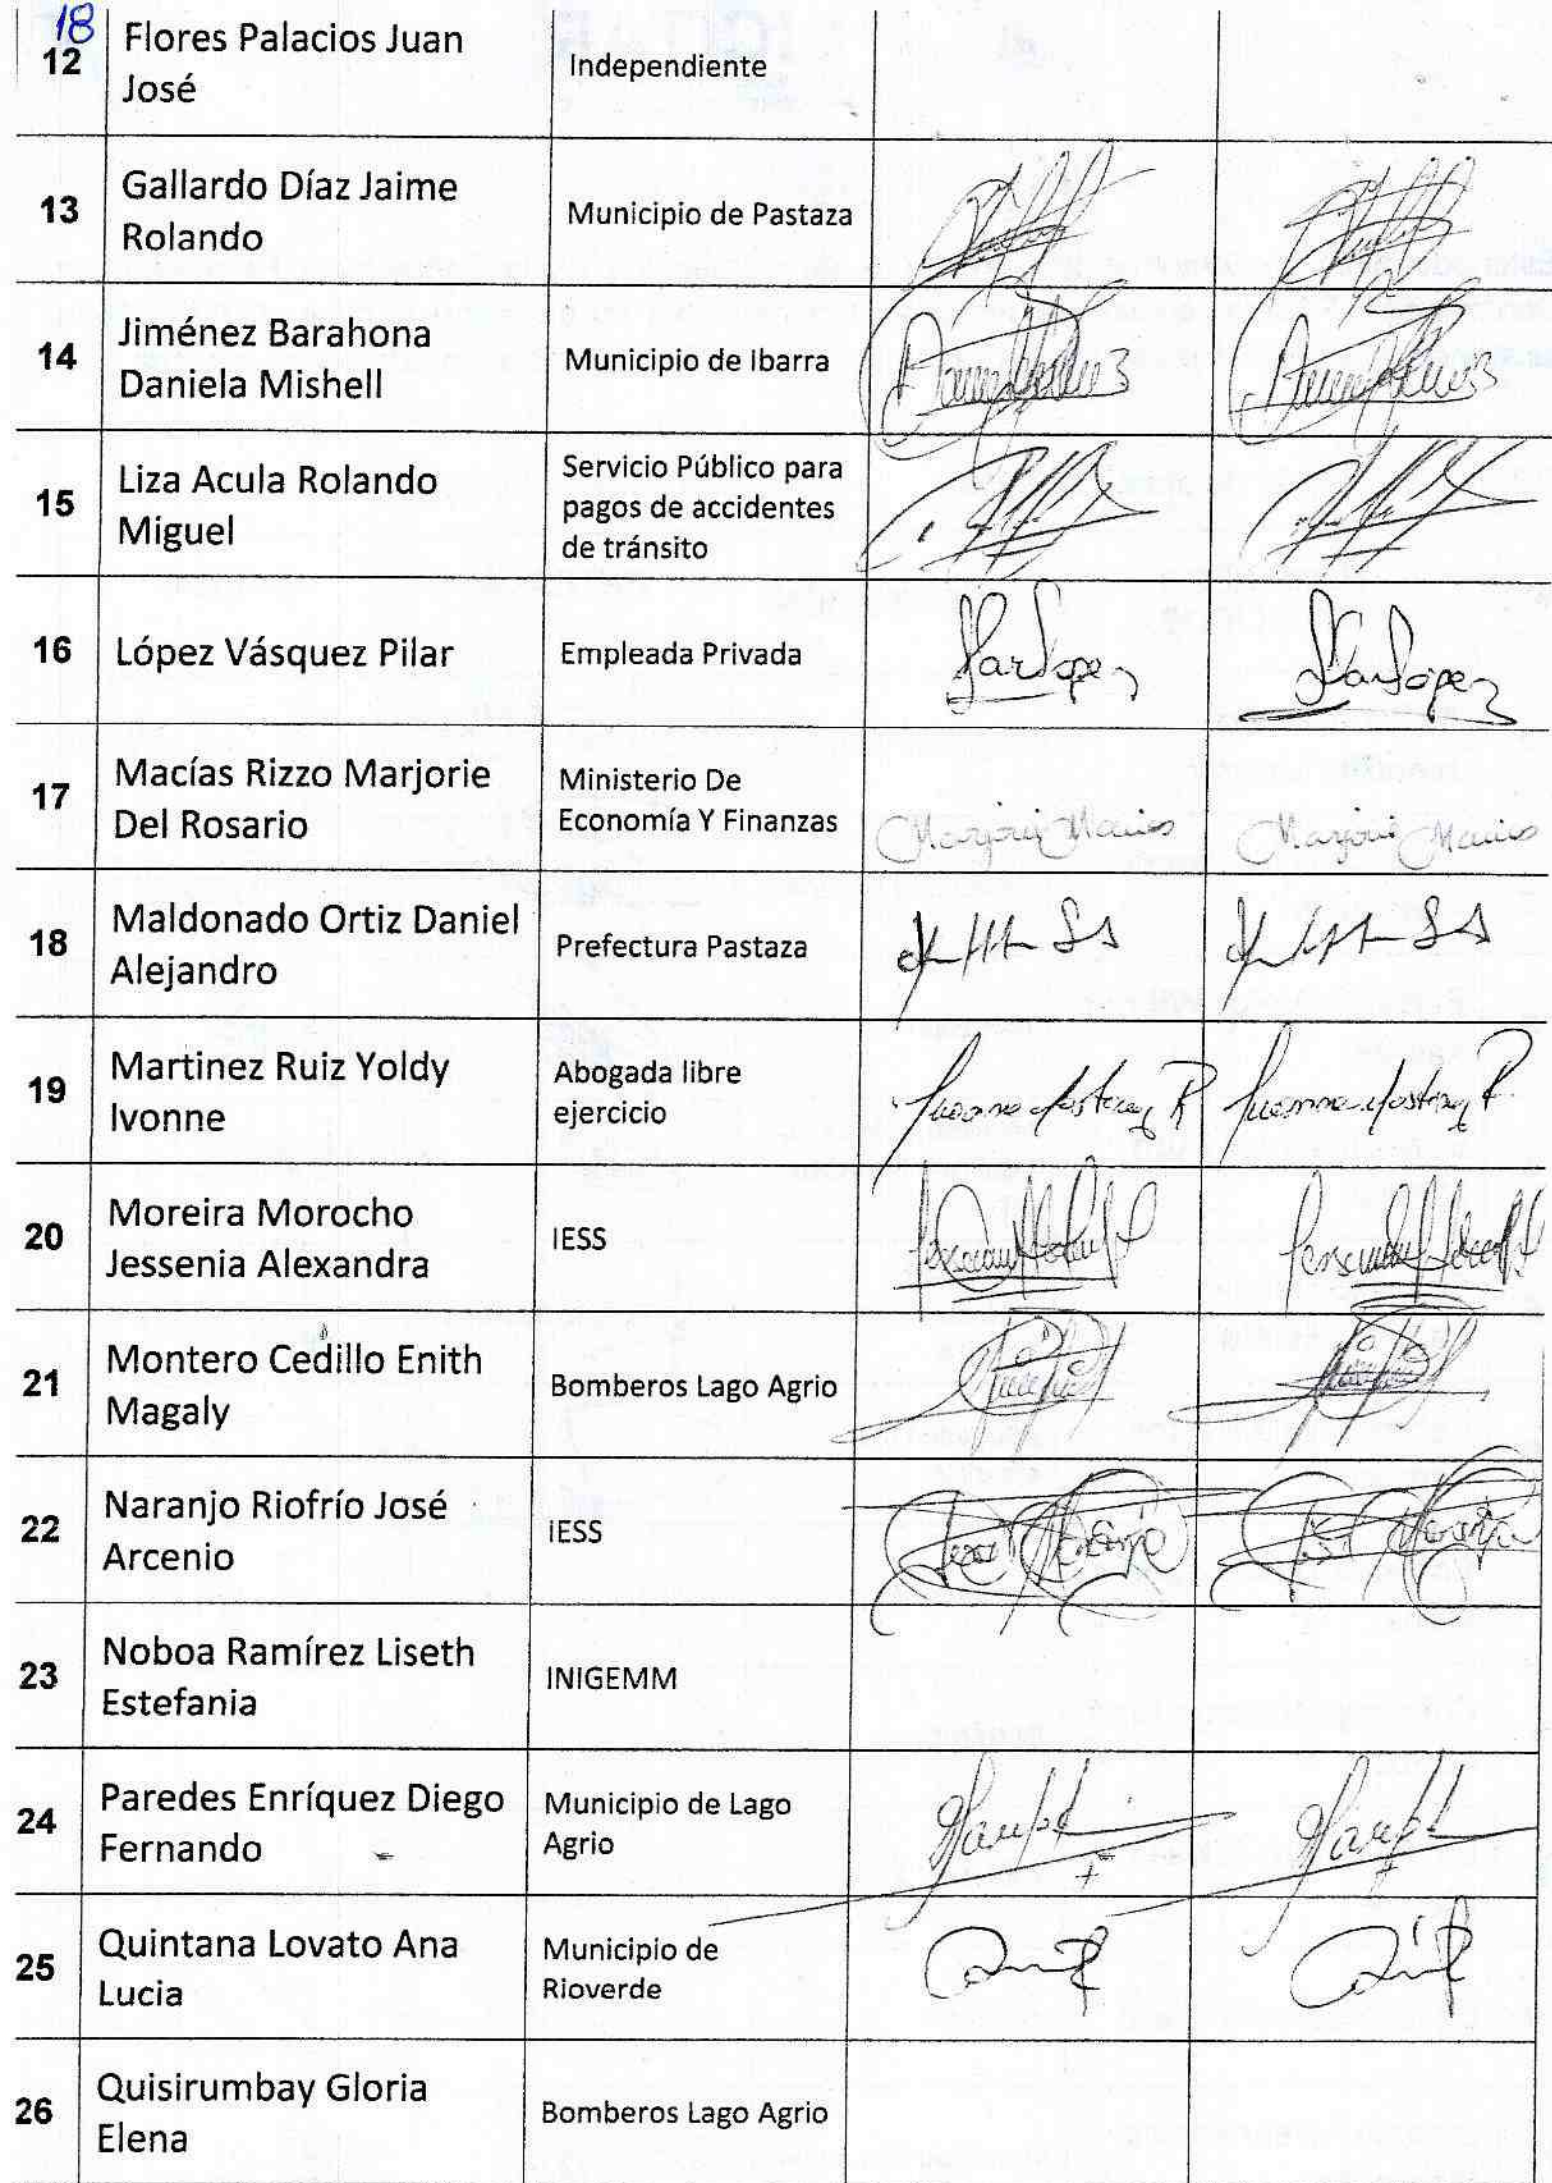 18
12 Flores Palacios Juan
José
Independiente
13 Gallardo Díaz Jaime
Rolando
Municipio de Pastaza
14 Jiménez Barahona
Daniela Mishell
Municipio de Ibarra
15 Liza Acula Rolando
Miguel
Servicio Público para
pagos de accidentes
de tránsito
16 López Vásquez Pilar
Empleada Privada
17 Macías Rizzo Marjorie
Del Rosario
Ministerio De
Economía Y Finanzas
18 Maldonado Ortiz Daniel
Alejandro
Prefectura Pastaza
19 Martinez Ruiz Yoldy
Ivonne
Abogada libre
ejercicio
20 Moreira Morocho
Jessenia Alexandra
IESS
21 Montero Cedillo Enith
Magaly
Bomberos Lago Agrio
22 Naranjo Riofrío José
Arcenio
IESS
23 Noboa Ramírez Liseth
Estefania
INIGEMM
24 Paredes Enríquez Diego
Fernando
Municipio de Lago
Agrio
25 Quintana Lovato Ana
Lucia
Municipio de
Rioverde
26 Quisirumbay Gloria
Elena
Bomberos Lago Agrio